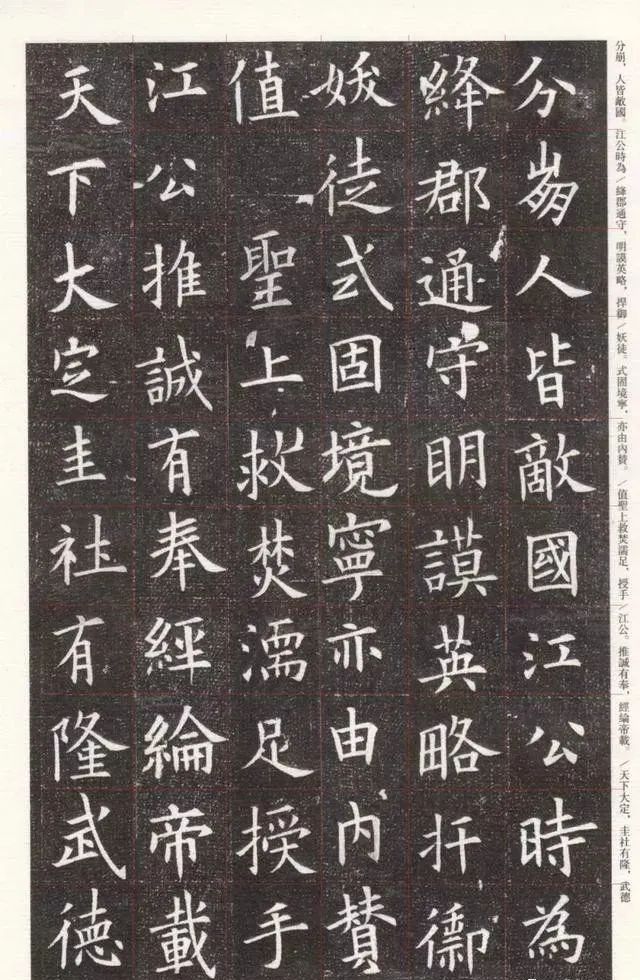 分崩，人皆敵國。江公時為／絳郡通守，明謨英略，捍御／妖徒。式固境寧，亦由内贊。／值聖上救焚濡足，授手／江公。推誠有奉，經綸帝載。／天下大定，圭社有隆，武德
分崩人皆敵國江公時為
絳郡通守明謨英略扞禦
妖徒式固境寧亦由内賛
值聖上救焚濡足授手
江公推誠有奉經綸帝載
天下大定圭社有隆武德